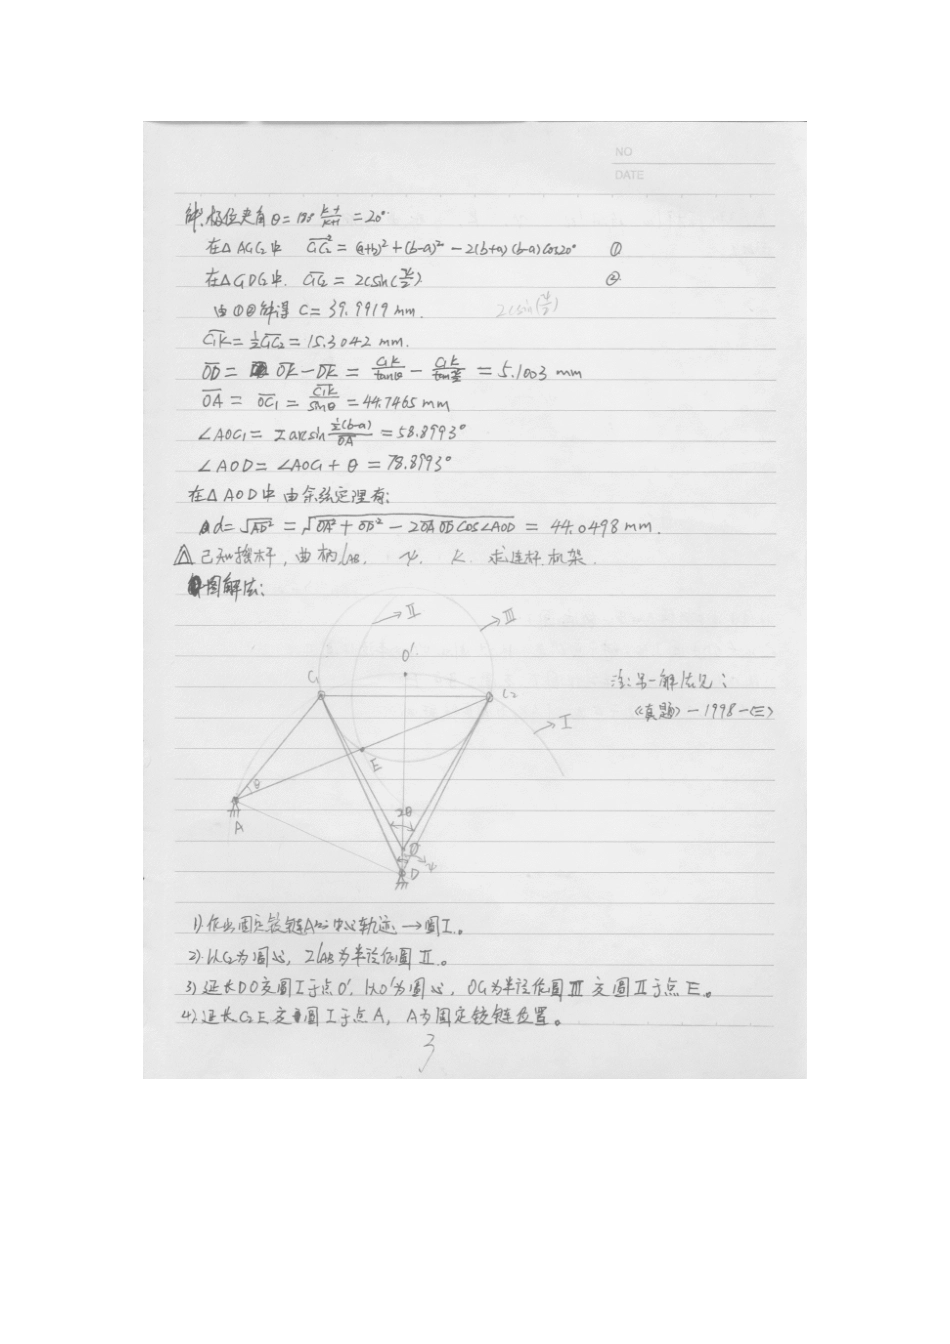 NO
DATE
解:极位夹角θ=180° (k-1)/(k+1) =20°
在△AC₁C₂中 C₁C₂² = (a+b)²+(b-a)² - 2(b+a)(b-a)cos20° ①
在△C₁DC₂中. C₁C₂ = 2csin(ψ/2) ②
由①②解得 C= 39.9919 mm. 2csin(ψ/2)
C₁K = ½C₁C₂ = 15.3042 mm.
OD = OK-DK = C₁K/tanθ - C₁K/tanψ/2 = 5.1003 mm
OA = OC₁ = C₁K/sinθ = 44.7465 mm
∠AOC₁ = 2arcsin ½(b-a)/OA = 58.8993°
∠AOD = ∠AOC₁ + θ = 78.8993°
在△AOD中 由余弦定理有:
d= √AD² = √OA²+OD²-2OA OD COS∠AOD = 44.0498 mm.
已知摇杆,曲柄l_AB, ψ, k. 求连杆.机架.
图解法:
II
III
O'
C₁
C₂
注:另一解法见:
《真题》-1998-(三)
I
E
θ
A
2θ
O
ψ
D
1).作出固定铰链A的中心轨迹→圆I。
2).以C₂为圆心, 2l_AB为半径作圆 II 。
3) 延长DO交圆I于点O', 以O'为圆心, O'C₁为半径作圆 III 交圆II于点E。
4).延长C₂E交圆I于点A, A为固定铰链位置。
3